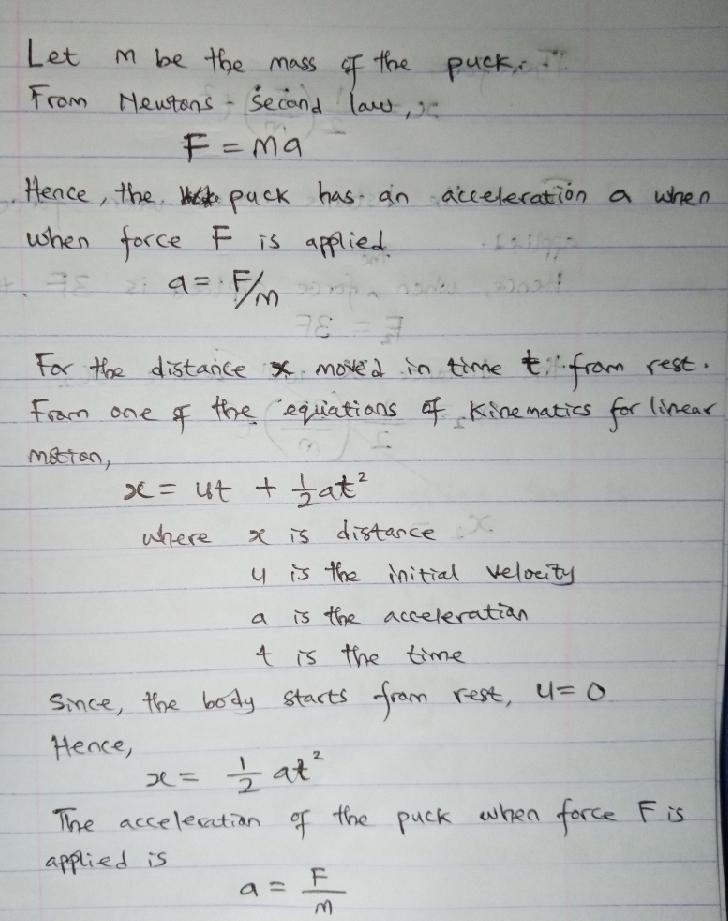 Let m be the mass of the puck.
From Newtons second law,
F = ma
Hence, the puck has an acceleration a when
when force F is applied.
a = F/m
For the distance x moved in time t from rest.
From one of the equations of kinematics for linear
motion,
x = ut + 1/2 at²
where x is distance
u is the initial velocity
a is the acceleration
t is the time
Since, the body starts from rest, u = 0
Hence,
x = 1/2 at²
The acceleration of the puck when force F is
applied is
a = F/m